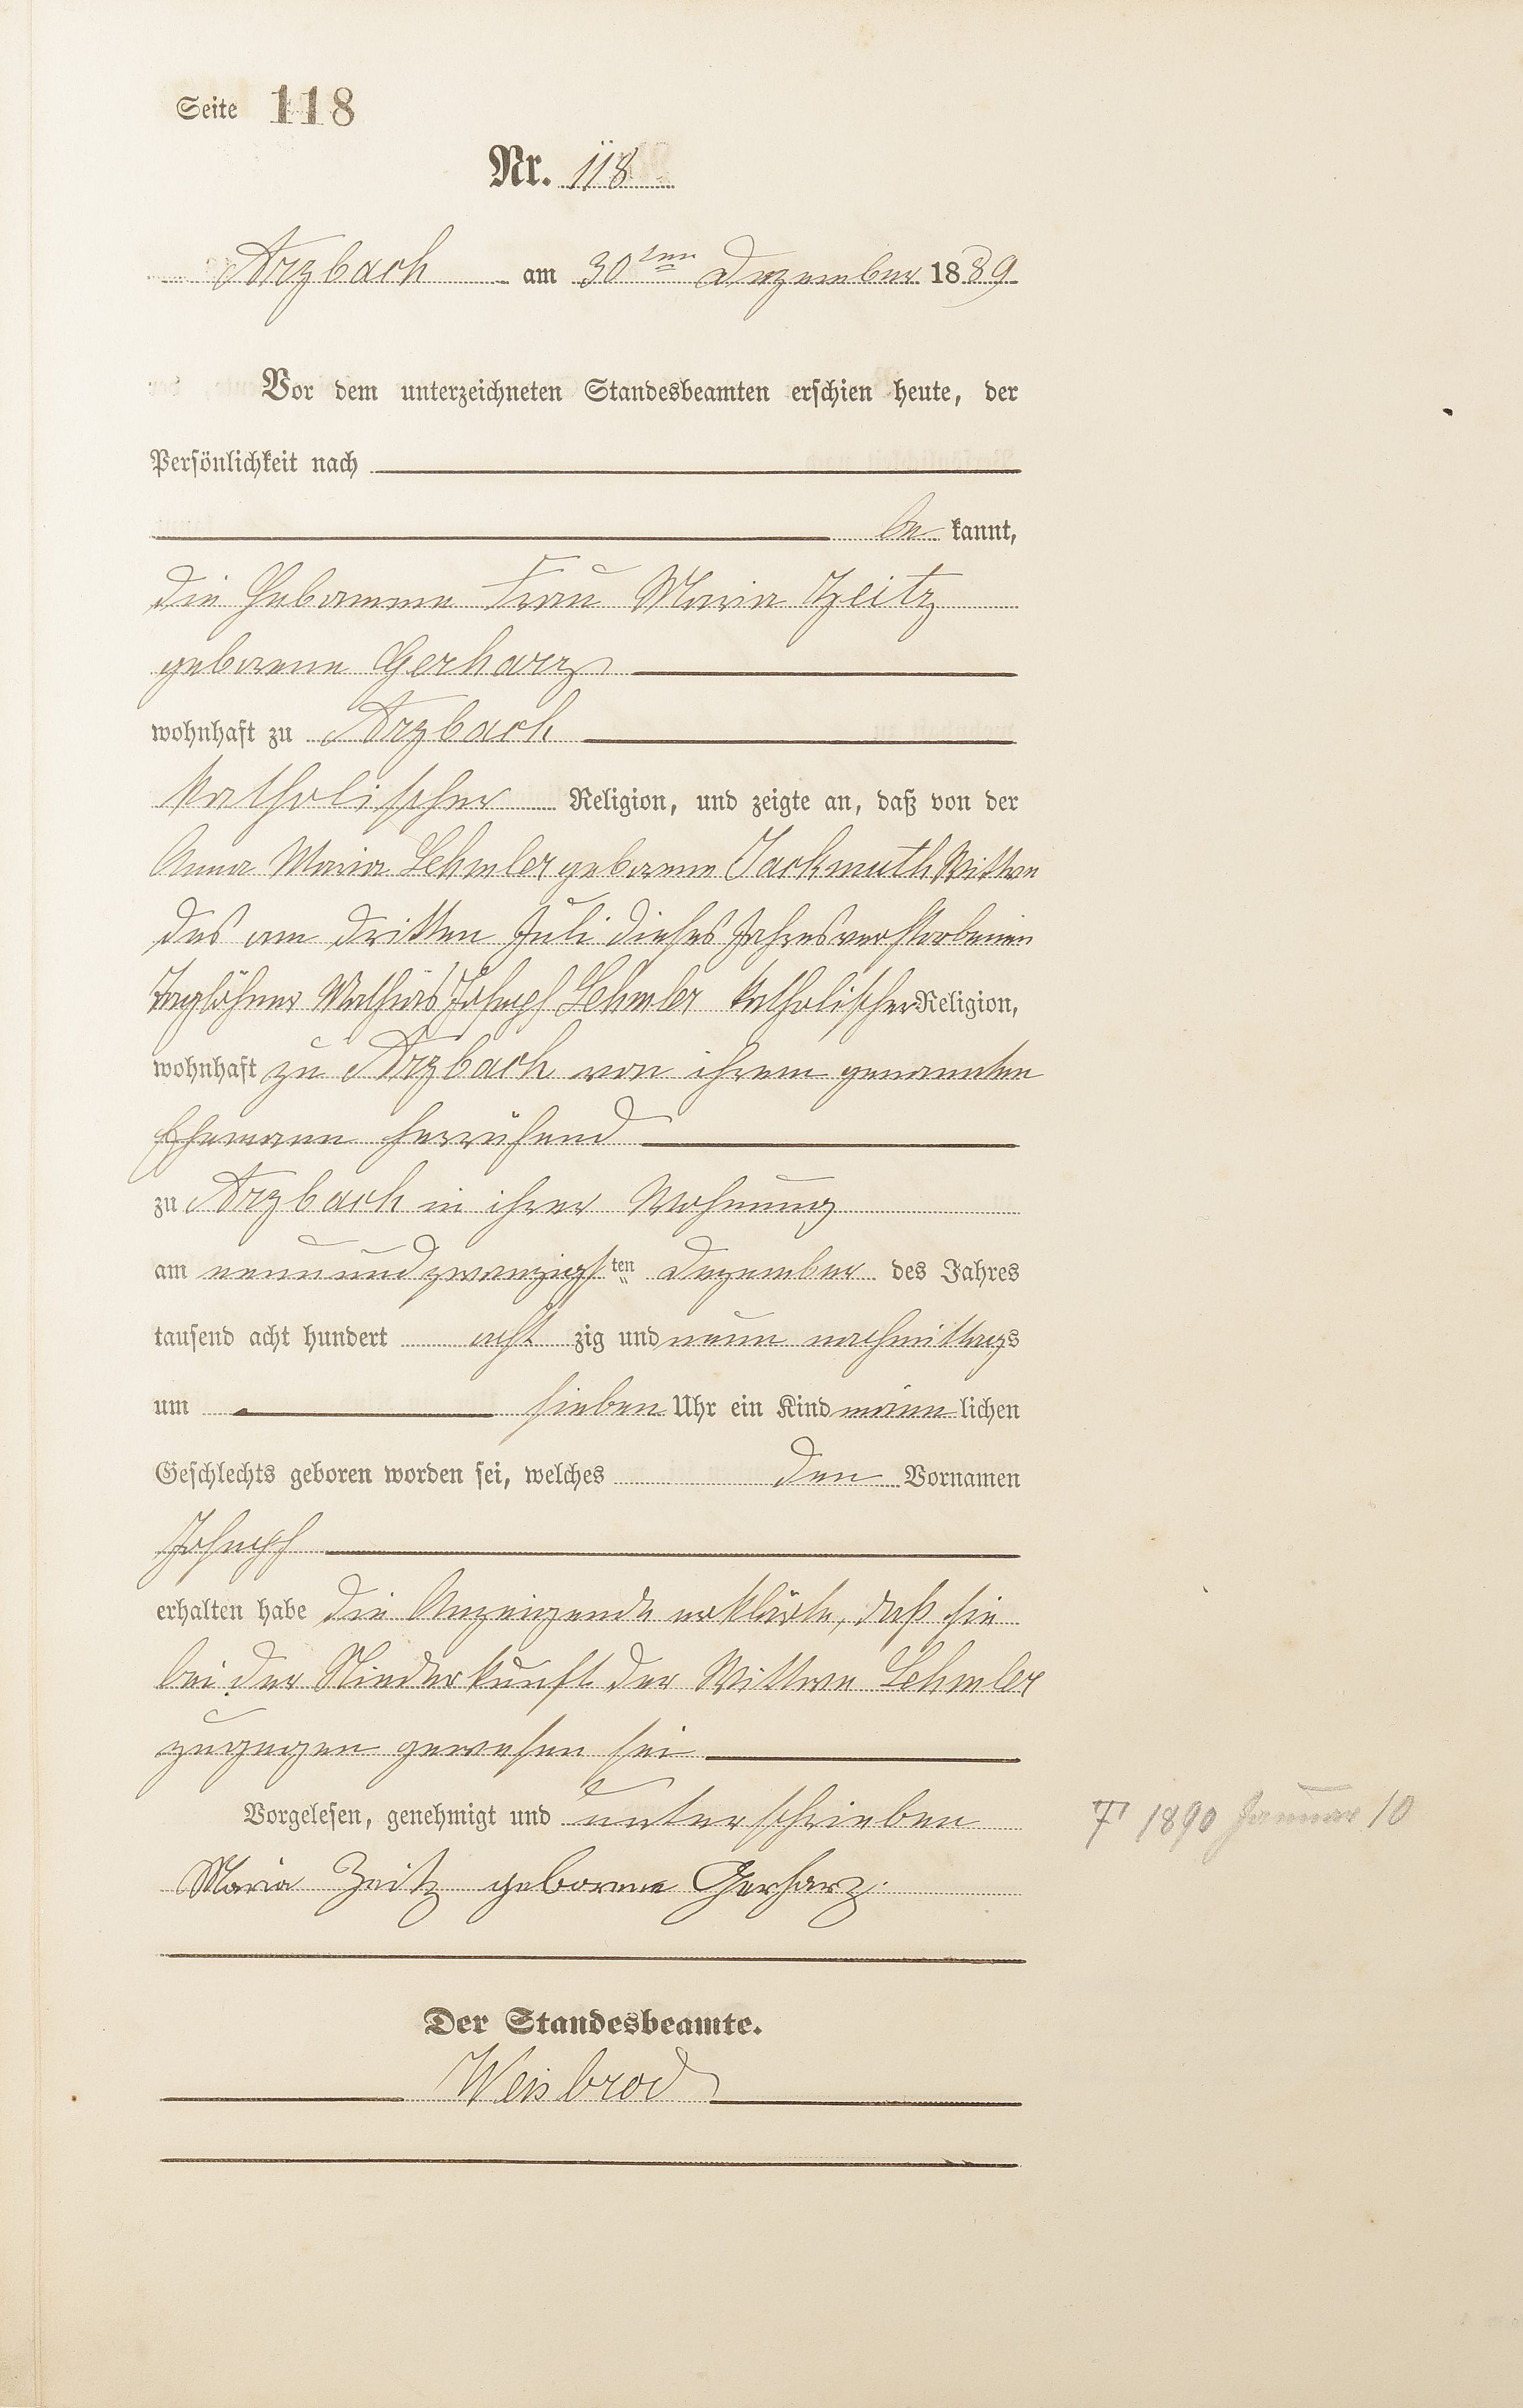 Seite 118
Nr. 118
Arzbach am 30ten Dezember 1889
Vor dem unterzeichneten Standesbeamten erschien heute, der
Persönlichkeit nach
be kannt,
die Hebamme Frau Maria Zeitz
geborene Gerharz
wohnhaft zu Arzbach
katholischer Religion, und zeigte an, daß von der
Anna Maria Lehmler geborene Jackmuth Wittwe
des am dritten Juli dieses Jahres verstorbenen
Taglöhner Mathias Joseph Lehmler katholischer Religion,
wohnhaft zu Arzbach von ihrem genannten
Ehemann herrührend
zu Arzbach in ihrer Wohnung
am neunundzwanzigsten Dezember des Jahres
tausend acht hundert acht zig und neun nachmittags
um sieben Uhr ein Kind männlichen
Geschlechts geboren worden sei, welches den Vornamen
Joseph
erhalten habe die Anzeigende erklärte, daß sie
bei der Niederkunft der Wittwe Lehmler
zugegen gewesen sei
Vorgelesen, genehmigt und unterschrieben
Maria Zeitz geborene Gerharz.
† 1890 Januar 10
Der Standesbeamte.
Weisbrod